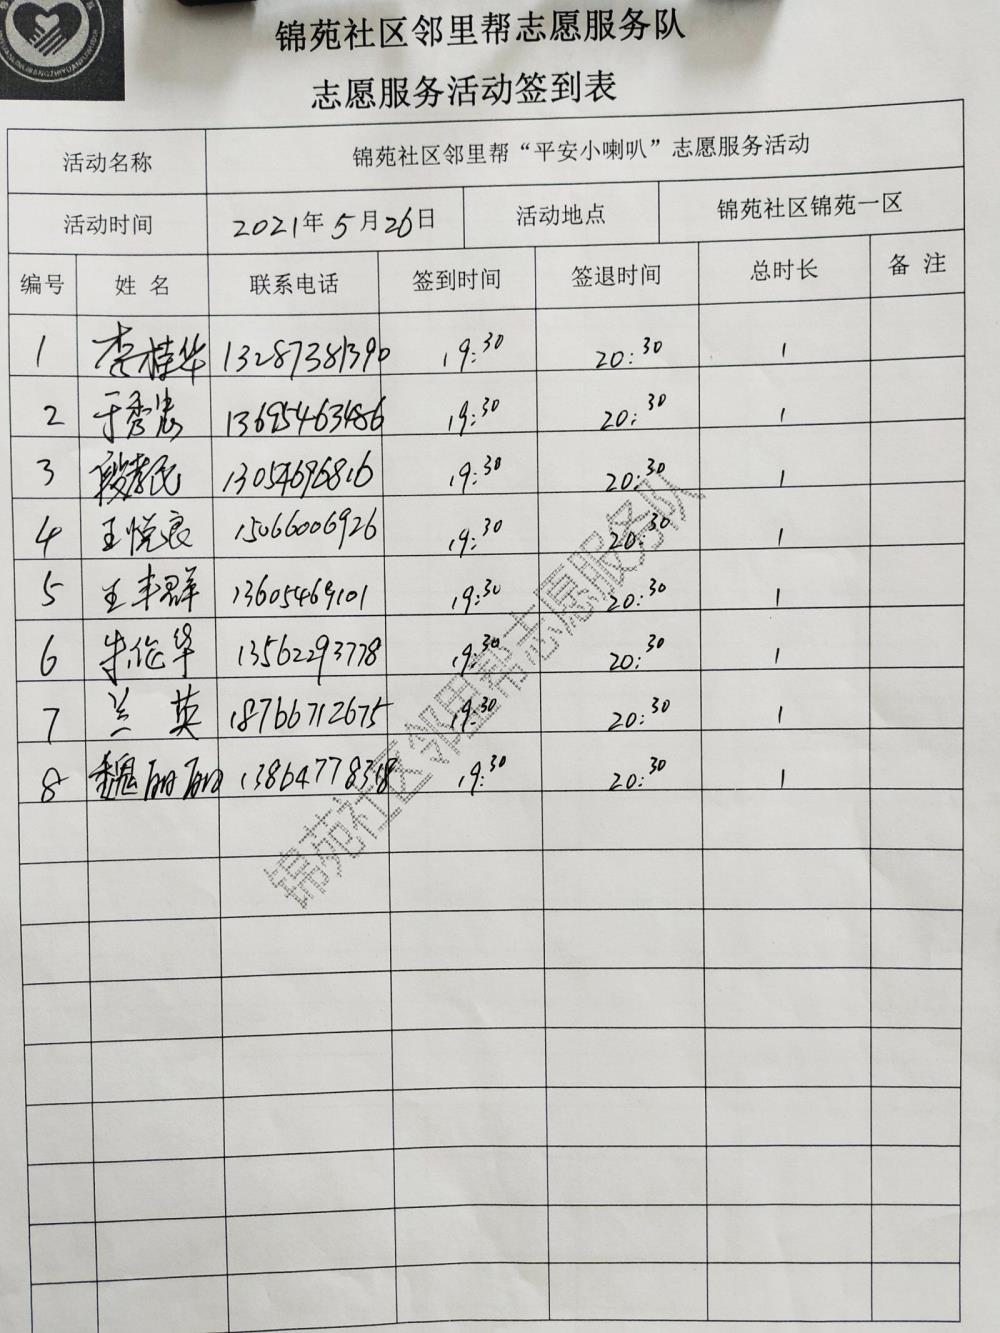 锦苑社区邻里帮志愿服务队
志愿服务活动签到表
活动名称 锦苑社区邻里帮“平安小喇叭”志愿服务活动
活动时间 2021年5月26日 活动地点 锦苑社区锦苑一区
编号 姓名 联系电话 签到时间 签退时间 总时长 备注
1 李桂华 13287381390 19:30 20:30 1
2 于秀忠 13695463486 19:30 20:30 1
3 段孝民 13054696816 19:30 20:30 1
4 王悦良 15066006926 19:30 20:30 1
5 王丰群 13605469101 19:30 20:30 1
6 牛作华 13562293778 19:30 20:30 1
7 兰英 18766712675 19:30 20:30 1
8 魏丽丽 13864778358 19:30 20:30 1
锦苑社区邻里帮志愿服务队